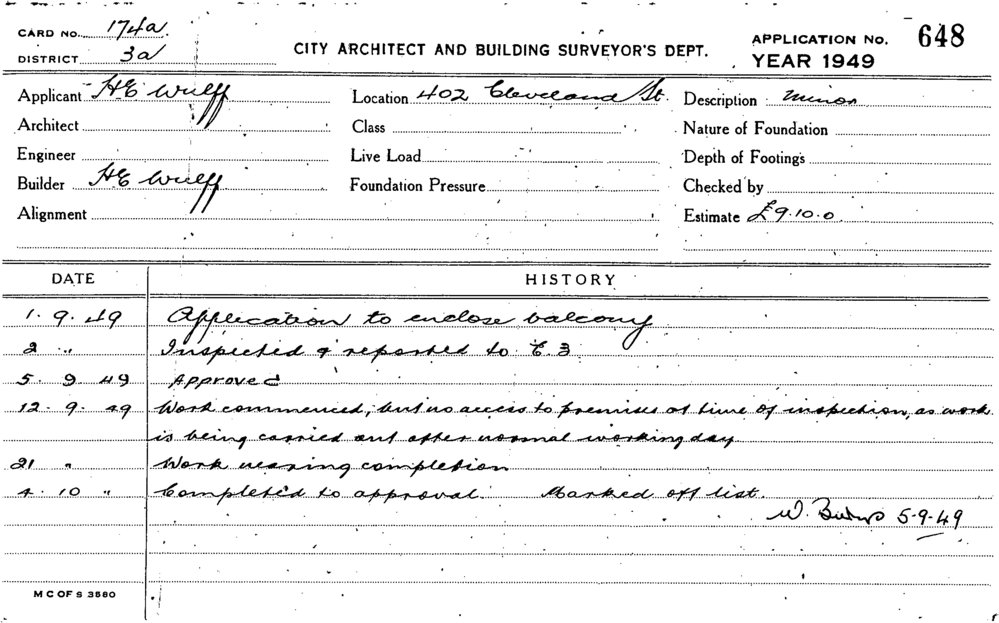 CARD No. 174a.
DISTRICT 3a
CITY ARCHITECT AND BUILDING SURVEYOR'S DEPT.
APPLICATION No. 648
YEAR 1949
Applicant HE Wulff
Location 402 Cleveland St.
Description minor
Architect
Class
Nature of Foundation
Engineer
Live Load
Depth of Footings
Builder HE Wulff
Foundation Pressure
Checked by
Alignment
Estimate £9.10.0
DATE HISTORY
1.9.49 Application to enclose balcony
2 " Inspected & reported to E.3
5.9.49 Approved
12.9.49 Work commenced, but no access to premises at time of inspection, as work
is being carried out after normal working day
21 " Work nearing completion
4.10 " Completed to approval. Marked off list.
W. 5-9-49
M C OF S 3580